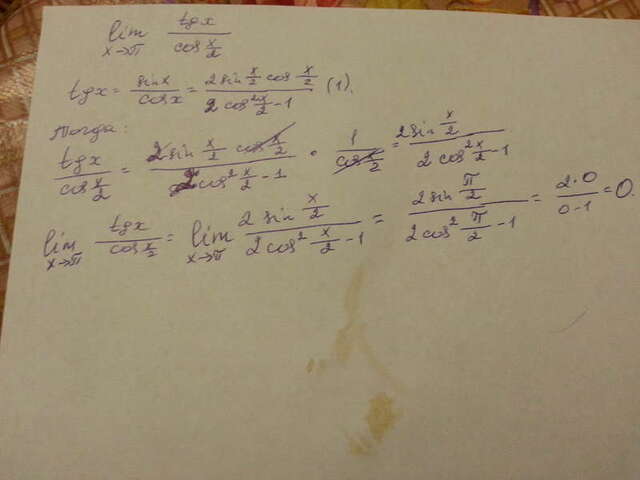 lim x→π tgx / cos x/2
tgx = sinx / cosx = 2sin x/2 cos x/2 / 2cos² x/2 -1 (1).
Тогда:
tgx / cos x/2 = 2sin x/2 cos x/2 / 2cos² x/2 -1 · 1 / cos x/2 = 2sin x/2 / 2cos² x/2 -1
lim x→π tgx / cos x/2 = lim x→π 2 sin x/2 / 2cos² x/2 -1 = 2 sin π/2 / 2cos² π/2 -1 = 2·0 / 0-1 = 0.